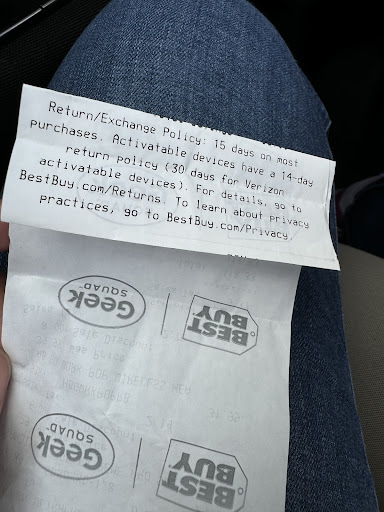 Return/Exchange Policy: 15 days on most
purchases. Activatable devices have a 14-day
return policy (30 days for Verizon
activatable devices). For details, go to
BestBuy.com/Returns. To learn about privacy
practices, go to BestBuy.com/Privacy.
Geek
SQUAD
BEST
BUY
Geek
SQUAD
BEST
BUY